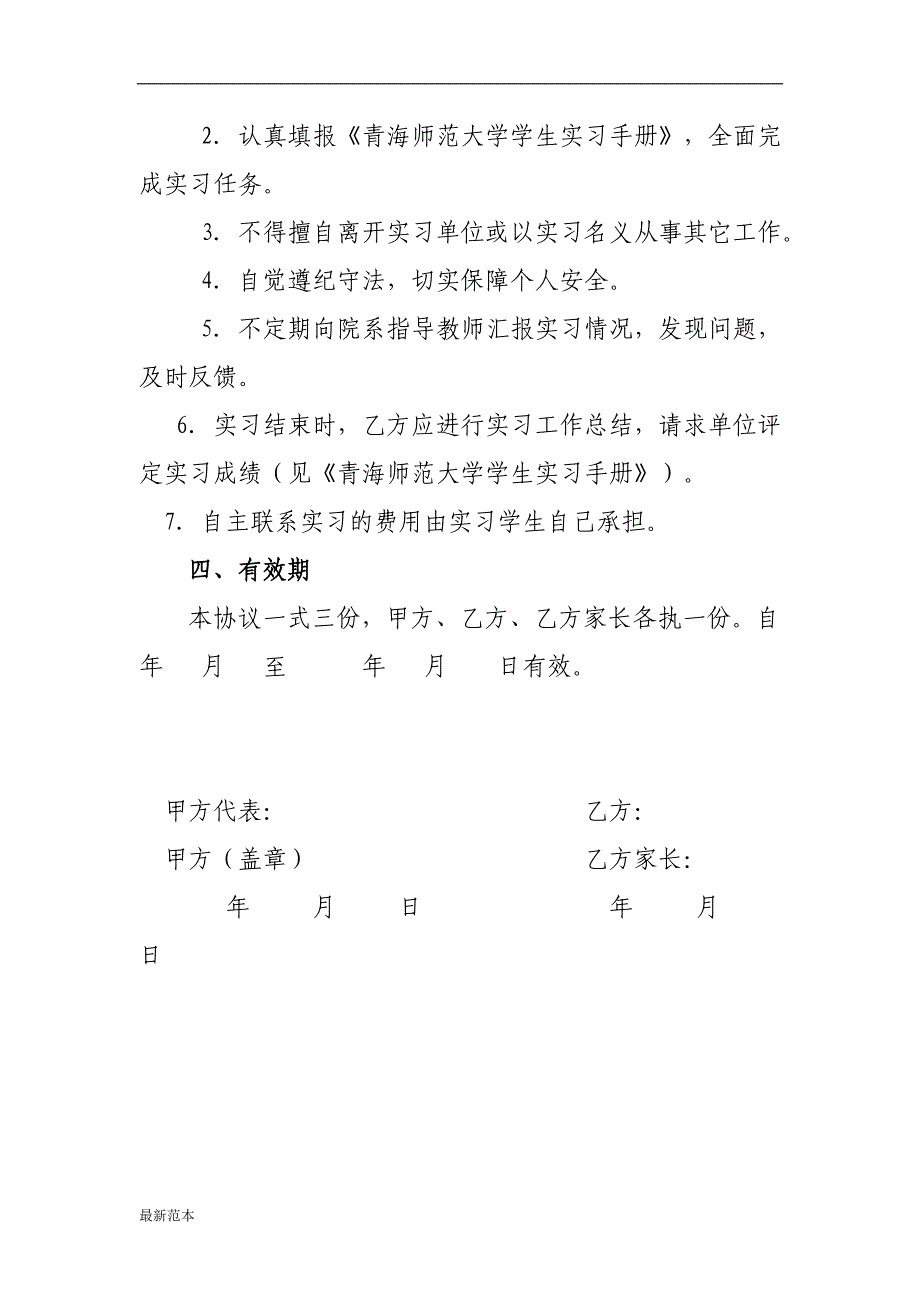 2. 认真填报《青海师范大学学生实习手册》,全面完
成实习任务。
3. 不得擅自离开实习单位或以实习名义从事其它工作。
4. 自觉遵纪守法,切实保障个人安全。
5. 不定期向院系指导教师汇报实习情况,发现问题,
及时反馈。
6. 实习结束时,乙方应进行实习工作总结,请求单位评
定实习成绩(见《青海师范大学学生实习手册》)。
7. 自主联系实习的费用由实习学生自己承担。
四、有效期
本协议一式三份,甲方、乙方、乙方家长各执一份。自
年 月 至 年 月 日有效。
甲方代表: 乙方:
甲方(盖章) 乙方家长:
年 月 日 年 月
日
最新范本